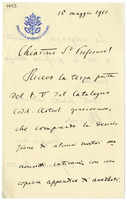 15 maggio 1910
Chiar.mo Sr. Professore!
Ricevo la terza parte
del t. V del Catalogus
Codd. Astrol. graecorum,
che comprende la descri-
zione di alcuni nostri ma-
noscritti vaticani con una
copiosa appendice di aneddoti.